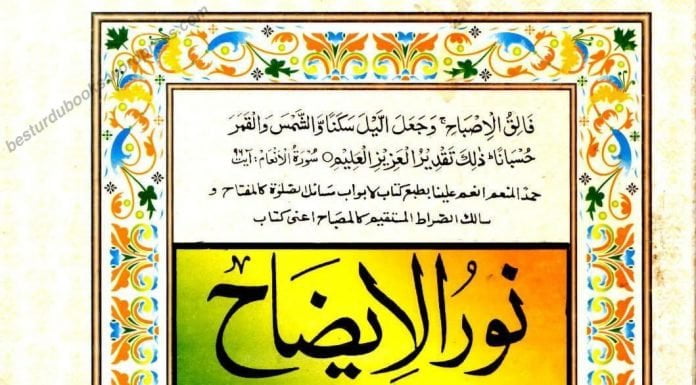 besturdubooks.wordpress.com
فَالِقُ الْاِصْبَاحِ ۚ وَجَعَلَ الَّيْلَ سَكَنًا وَّالشَّمْسَ وَالْقَمَرَ
حُسْبَانًا ؕ ذٰلِكَ تَقْدِيْرُ الْعَزِيْزِ الْعَلِيْمِ ○ سُوْرَةُ الْاَنْعَام: آیت ۹۶
حمد المنعم انعم علينا بطبع كتاب لابواب مسائل الصلوة كالمفتاح و
سالك الصراط المستقيم كالمصباح اعنى كتاب
نُورُ الْإِيضَاح